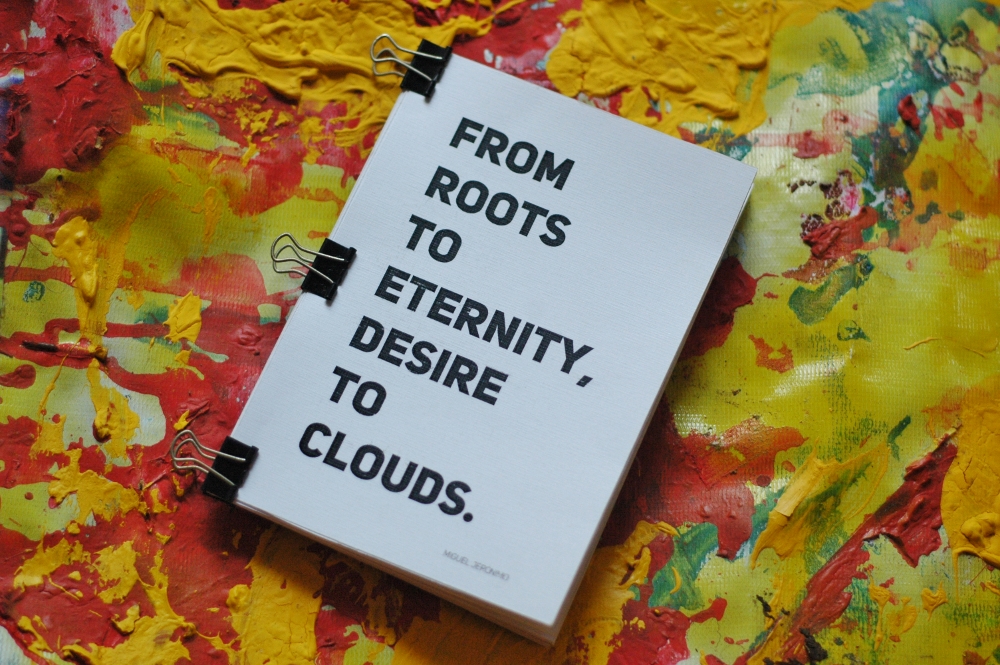 FROM
ROOTS
TO
ETERNITY,
DESIRE
TO
CLOUDS.
MIGUEL JERÓNIMO